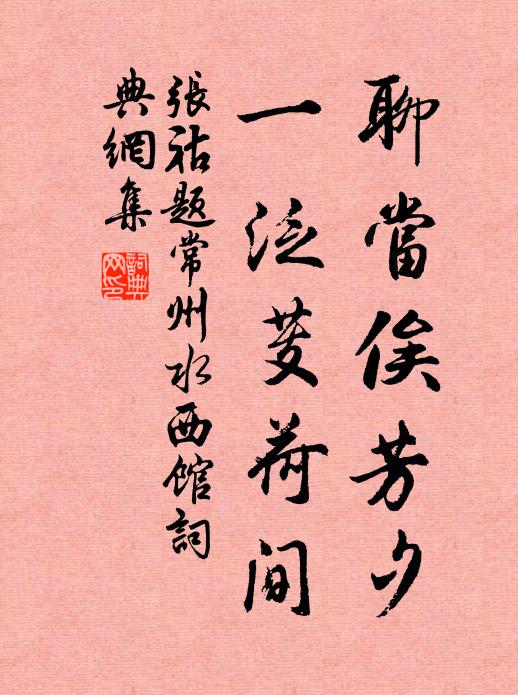 聊當俟芳夕
一泛芰荷間
張祜題常州水西館詞
典網集
詞典網印